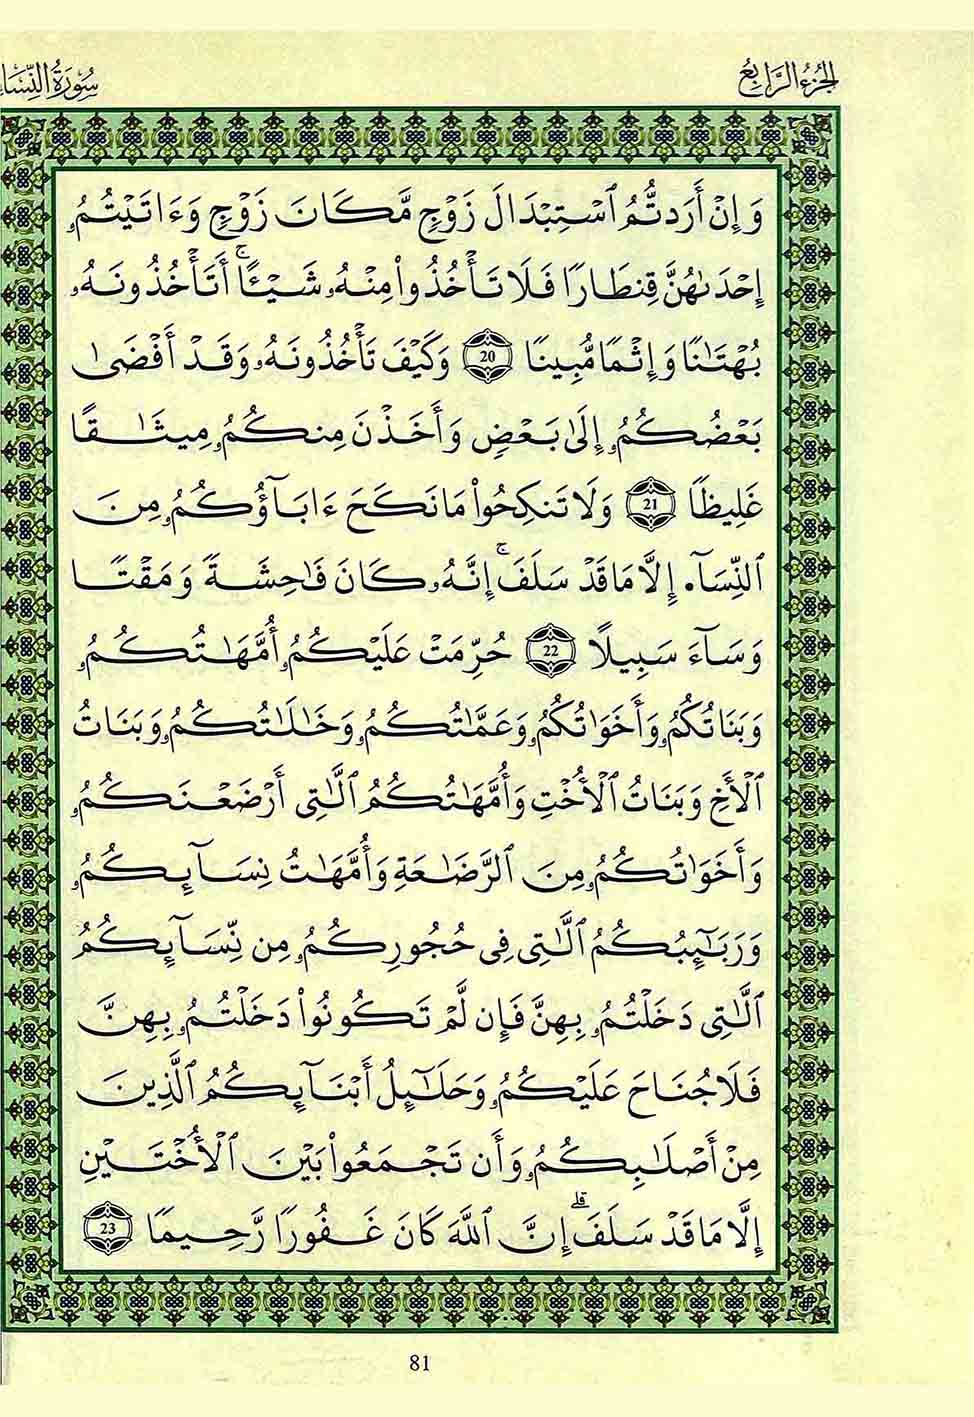 الجزء الرابع
سورة النسا
وَإِنْ أَرَدتُّمُ ٱسْتِبْدَالَ زَوْجٍ مَّكَانَ زَوْجٍ وَءَاتَيْتُمُۥ
إِحْدَىٰهُنَّ قِنطَارًا فَلَا تَأْخُذُواْ مِنْهُۥ شَيْـًٔا ۚ أَتَأْخُذُونَهُۥ
بُهْتَـٰنًا وَإِثْمًا مُّبِينًا 20 وَكَيْفَ تَأْخُذُونَهُۥ وَقَدْ أَفْضَىٰ
بَعْضُكُمُۥ إِلَىٰ بَعْضٍ وَأَخَذْنَ مِنكُمُۥ مِيثَـٰقًا
غَلِيظًا 21 وَلَا تَنكِحُواْ مَا نَكَحَ ءَابَآؤُكُمُۥ مِنَ
ٱلنِّسَآ. إِلَّا مَا قَدْ سَلَفَ ۚ إِنَّهُۥ كَانَ فَـٰحِشَةً وَمَقْتًا
وَسَآءَ سَبِيلًا 22 حُرِّمَتْ عَلَيْكُمُۥ أُمَّهَـٰتُكُمُۥ
وَبَنَاتُكُمُۥ وَأَخَوَٰتُكُمُۥ وَعَمَّـٰتُكُمُۥ وَخَـٰلَـٰتُكُمُۥ وَبَنَاتُ
ٱلْأَخِ وَبَنَاتُ ٱلْأُخْتِ وَأُمَّهَـٰتُكُمُ ٱلَّـٰتِى أَرْضَعْنَكُمُۥ
وَأَخَوَٰتُكُمُۥ مِنَ ٱلرَّضَـٰعَةِ وَأُمَّهَـٰتُ نِسَآئِكُمُۥ
وَرَبَـٰٓئِبُكُمُ ٱلَّـٰتِى فِى حُجُورِكُمُۥ مِن نِّسَآئِكُمُ
ٱلَّـٰتِى دَخَلْتُمُۥ بِهِنَّ فَإِن لَّمْ تَكُونُواْ دَخَلْتُمُۥ بِهِنَّ
فَلَا جُنَاحَ عَلَيْكُمُۥ وَحَلَـٰٓئِلُ أَبْنَآئِكُمُ ٱلَّذِينَ
مِنْ أَصْلَـٰبِكُمُۥ وَأَن تَجْمَعُواْ بَيْنَ ٱلْأُخْتَيْنِ
إِلَّا مَا قَدْ سَلَفَ ۗ إِنَّ ٱللَّهَ كَانَ غَفُورًا رَّحِيمًا 23
81